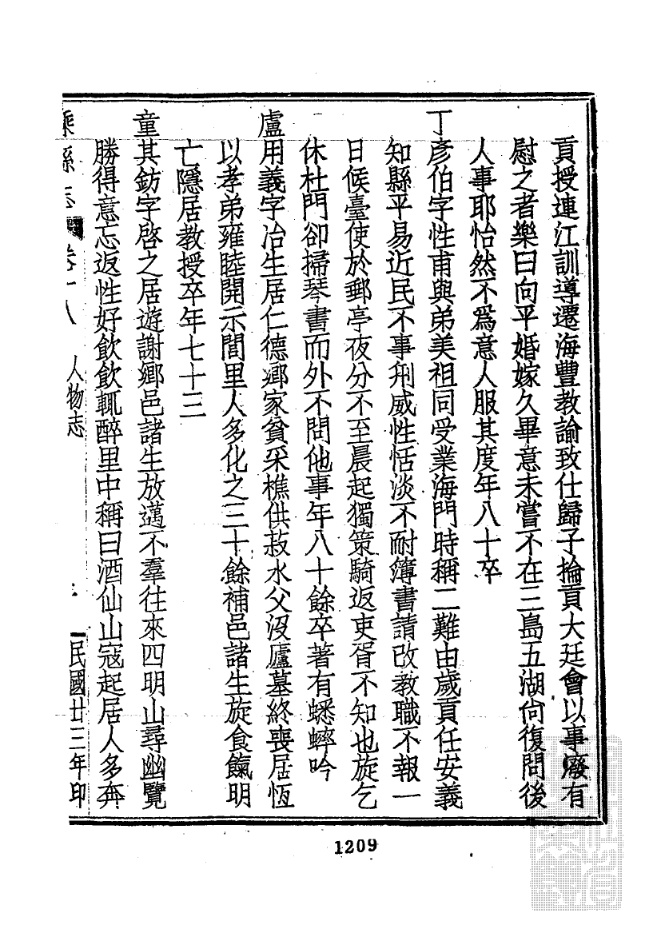 貢授連江訓導遷海豐教諭致仕歸子掄貢大廷會以事廢有
慰之者樂曰向平婚嫁久畢意未嘗不在三島五湖尙復問後
人事耶怡然不爲意人服其度年八十卒
丁彥伯字性甫與弟美祖同受業海門時稱二難由歲貢任安義
知縣平易近民不事刑威性恬淡不耐簿書請改教職不報一
日候臺使於郵亭夜分不至晨起獨策騎返吏胥不知也旋乞
休杜門卻掃琴書而外不問他事年八十餘卒著有蟋蟀吟
盧用義字冶生居仁德鄉家貧采樵供菽水父沒廬墓終喪居恆
以孝弟雍睦開示閭里人多化之三十餘補邑諸生旋食餼明
亡隱居教授卒年七十三
童其鈁字啓之居遊謝鄉邑諸生放邁不羣往來四明山尋幽覽
勝得意忘返性好飲飲輒醉里中稱曰酒仙山寇起居人多奔
縣志 卷十八 人物志 民國廿三年印
1209